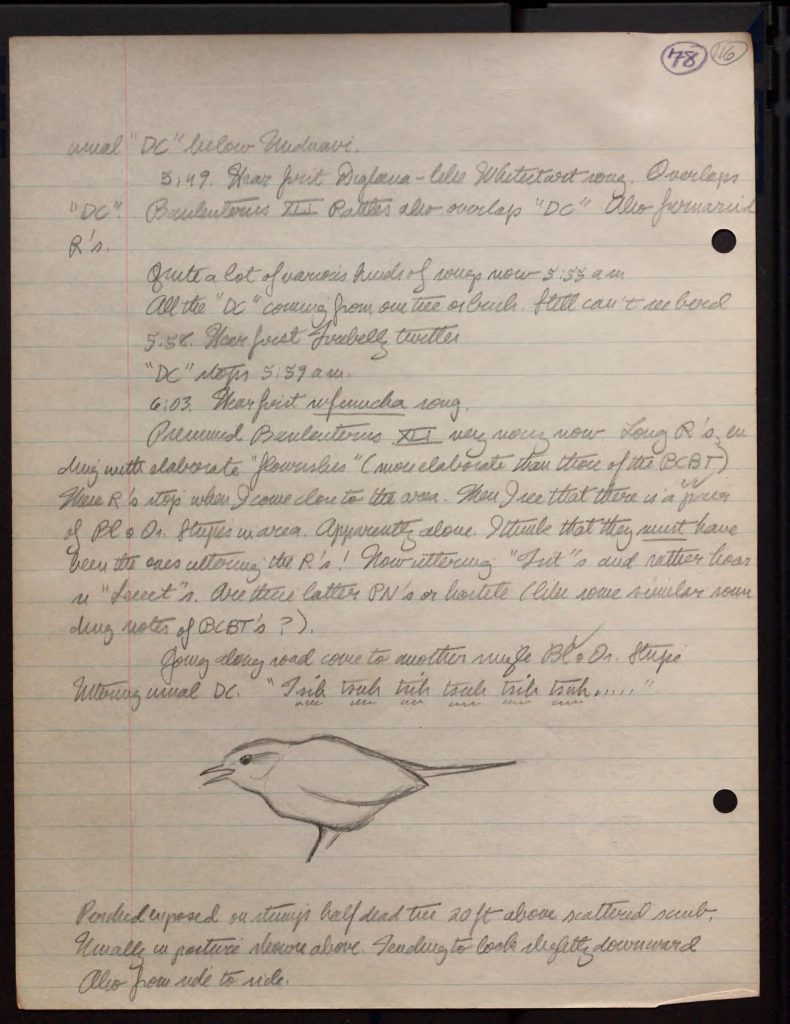 78 116
usual "DC" below Unduavi.
5:49. Hear first Diglossa-like Whitestart song. Overlaps
"DC". Basileuterus XII Rattles also overlap "DC" Also furnariid
R's.
Quite a lot of various kinds of songs now 5:55 a.m.
All the "DC" coming from one tree or bush. Still can't see bird
5:58. Hear first twitter
"DC" stops 5:59 a.m.
6:03. Hear first song.
Presumed Basileuterus XII very noisy now. Long R's, en
ding with elaborate "flourishes" (more elaborate than those of the BCBT)
These R's stop when I come close to the area. Then I see that there is a pair
of Bl o Or. Stripes in area. Apparently alone. I think that they must have
been the ones uttering the R's! Now uttering "Tsit"s and rather hoar
se Are these latter PN's or hostile (like some similar soun
ding notes of BCBT's?).
Going along road come to another single Bl o Or. Stripe
Uttering usual DC. "Tsih tsuh tsih tsuh tsih tsuh....."
Perched exposed on stump half dead tree 20 ft above scattered scrub.
Usually in posture shown above. Tending to look slightly downward
Also from side to side.